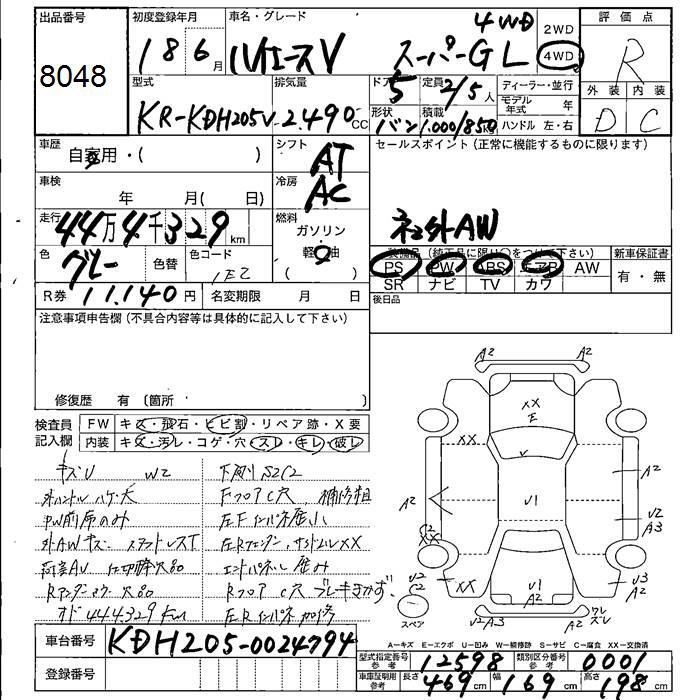 出品番号
8048
初度登録年月
18 6月
車名・グレード
ハイエースV スーパーGL 4WD
2WD
4WD
評価点
R
外装 内装
D C
型式
KR-KDH205V
排気量
2.490cc
ドア
5
定員
2/5人
形状
バン
積載
1.000/850kg
ディーラー・並行
モデル年式 年
ハンドル 左・右
車歴
自家用・( )
シフト
AT
セールスポイント (正常に機能するものに限ります)
車検
年 月( 日)
冷房
AC
走行
44万4千329km
燃料
ガソリン
軽油
( )
ネ外AW
色
グレー
色替
色コード
1E7
装備品 (純正品に限り○をつけて下さい)
PS PW ABS エアB AW
SR ナビ TV カワ
新車保証書
有・無
R券 11.140円
名変期限 月 日
後日品
注意事項申告欄 (不具合内容等は具体的に記入して下さい)
修復歴 有 〔箇所 〕
検査員記入欄
FW キズ・飛石・ヒビ割・リペア跡・X要
内装 キズ・汚レ・コゲ・穴・スレ・キレ・破レ
キズU W2
下廻りS2C2
外ハンドルハゲ・大
FフロアC穴、補修粗
PW前席のみ
左Fインパネ歪小
外AWキズ
XX
エンドパネル歪み
RフロアC穴 ブレーキきかず
オド444329km
左Rインパネ加修
A2 A2
XX
E
XX
V
A2
A2
V1
V2
A3
C2
XX
V2
C2
XX
V1
A2
V3
A2
スペア
V2A3
ワレ
ズレ
A=キズ E=エクボ U=凹み W=補修跡 S=サビ C=腐食 XX=交換済
車台番号 KDH205-0024794
登録番号
型式指定番号 参考 12598
類別区分番号 参考 0001
車庫証明用 参考 長さ 469cm 幅 169cm 高さ 198cm